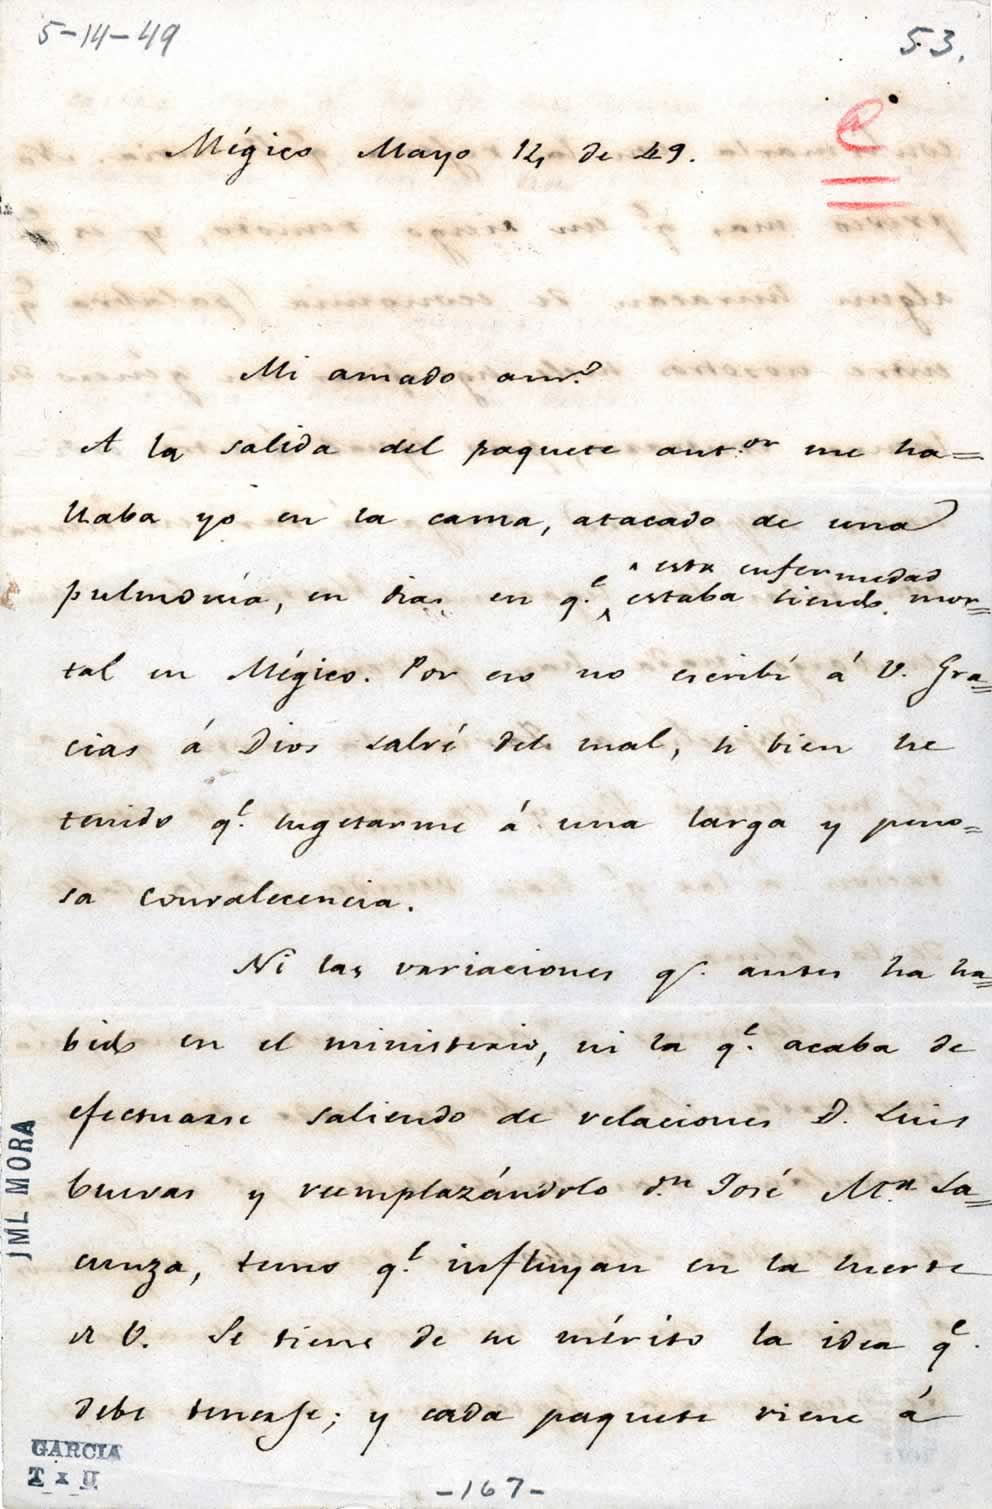 5-14-49
53.
Mégico Mayo 14 de 49.
Mi amado am.º
A la salida del paquete ant.or me ha=
llaba yo en la cama, atacado de una
esta enfermedad
pulmonía, en dias en q.e estaba siendo mor=
tal en Mégico. Por eso no escribí á V. Gra=
cias á Dios salvé del mal, si bien he
tenido q.e sugetarme á una larga y peno=
sa convalecencia.
Ni las variaciones q.e antes ha ha=
bido en el ministerio, ni la q.e acaba de
efectuarse saliendo de relaciones D. Luis
Cuevas y reemplazándolo d.n José M.a La=
cunza, temo q.e influyan en la suerte
de V. Se tiene de su mérito la idea q.e
debe tenerse; y cada paquete viene á
JML MORA
GARCIA
T x U
-167-